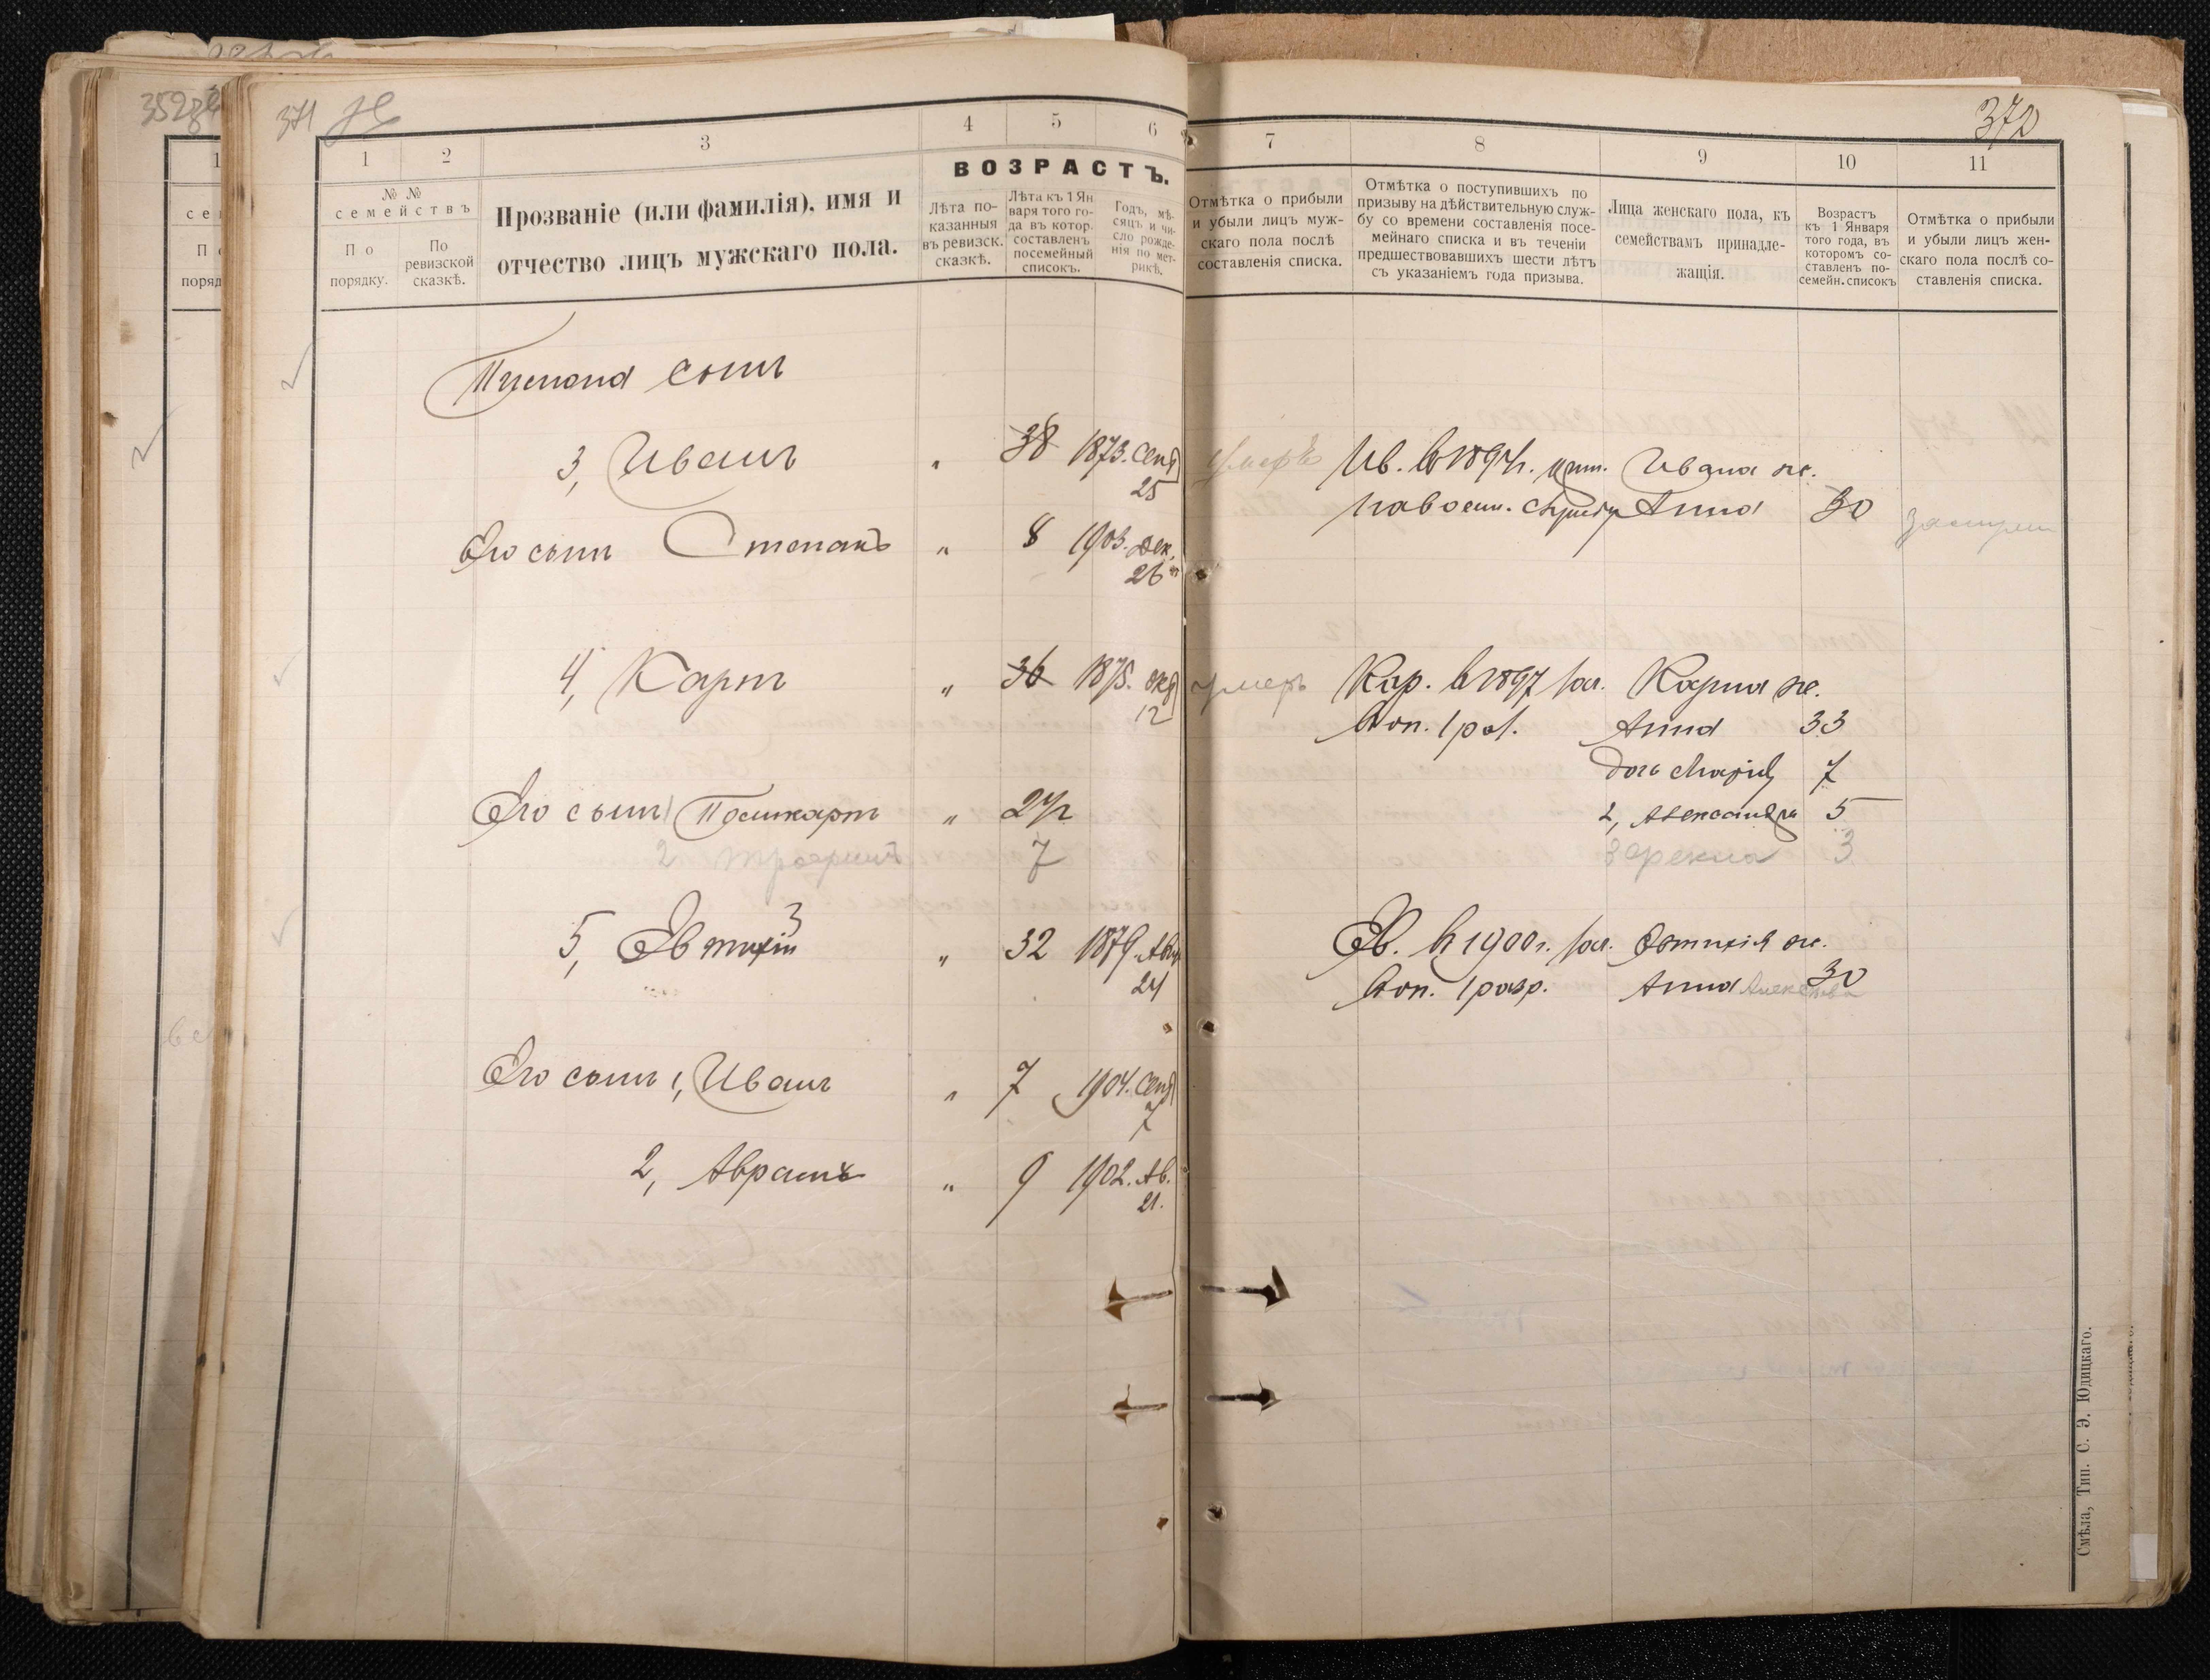 371
372
1
2
3
4
5
6
7
8
9
10
11
№ №
семействъ
По
порядку.
По
ревизской
сказкѣ.
Прозваніе (или фамилія), имя и
отчество лицъ мужскаго пола.
ВОЗРАСТЪ.
Лѣта по-
казанныя
въ ревизск.
сказкѣ.
Лѣта къ 1 Ян
варя того го-
да въ котор.
составленъ
посемейный
списокъ.
Годъ, мѣ-
сяцъ и чи-
сло рожде-
нія по мет-
рикѣ.
Отмѣтка о прибыли
и убыли лицъ муж-
скаго пола послѣ
составленія списка.
Отмѣтка о поступившихъ по
призыву на дѣйствительную служ-
бу со времени составленія посе-
мейнаго списка и въ теченіи
предшествовавшихъ шести лѣтъ
съ указаніемъ года призыва.
Лица женскаго пола, къ
семействамъ принадле-
жащія.
Возрастъ
къ 1 Января
того года, въ
которомъ со-
ставленъ по-
семейн. списокъ
Отмѣтка о прибыли
и убыли лицъ жен-
скаго пола послѣ со-
ставленія списка.
сынъ
3, Иванъ " 38 1873. Сент умеръ Ив. въ 1894 г. Ивана ж.
25 Анна 30
Его сынъ Степанъ " 8 1903. Дек.
26
4, Карпъ " 36 1875. окт умеръ Кар. въ 1897 Карпа ж.
12 1 раз. Анна 33
дочь Марія 7
Его сынъ Поликарпъ " 2 1/2 2, Александра 5
2 7 3 Фекла 3
5, Евтихій 3 " 32 1879. Авг Ев. въ 1900 г. Евтихія ж.
24 1 разр. Анна 30
Его сынъ 1, Иванъ " 7 1904. Сент
7
2, Авраамъ " 9 1902. Ав.
21.
Смѣла, Тип. С. Э. Юдицкаго.